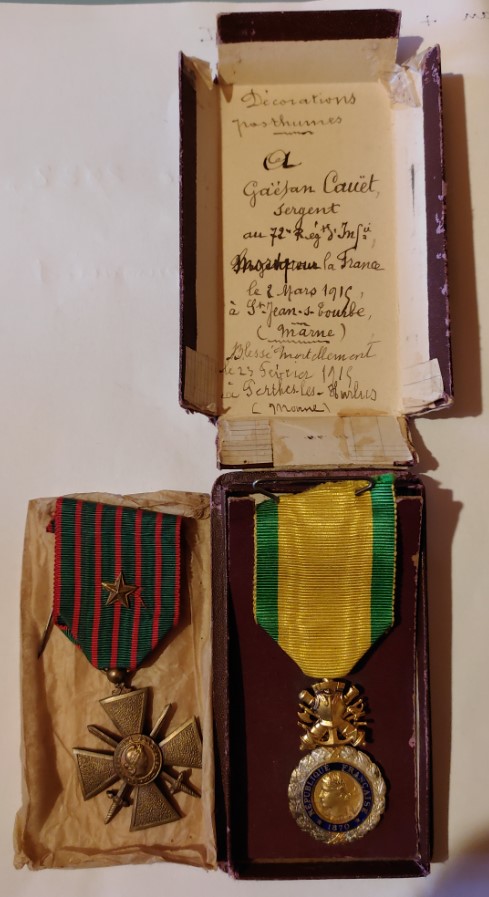 Décorations
posthumes
A
Gaëtan Cauët,
Sergent
au 72e Régt d'Infie,
Mort pour la France
le 2 Mars 1915,
à St Jean-s-Tourbe,
(Marne)
Blessé Mortellement
le 23 Février 1915
à Perthes-les-Hurlus
(Marne)
RÉPUBLIQUE FRANÇAISE
1870